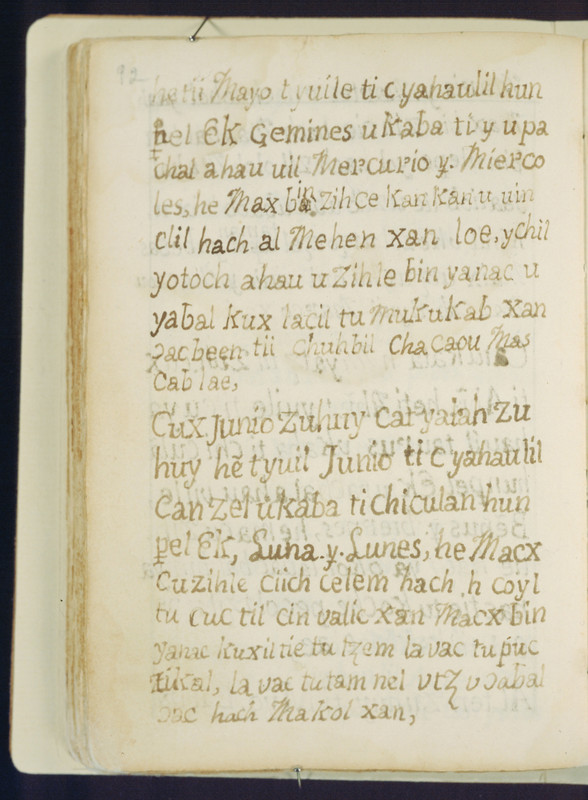 92
he tii Mayo t yuile ti c yahaulil hun
pel Ek Gemines u kaba ti y u pa
chal ahau uil Mercurio y. Mierco
les, he Max bin Zihce Kan Kan u uin
clil hach al Mehen xan loe, ychil
yotoch ahau u Zihle bin yanac u
yabal kux lacil tu Muk u Kab xan
ɔac been tii chuhbil chacaou Mas
Cab lae,
Cux Junio Zuhuy Cat yaiah Zu
huy he t yuil Junio ti c yahaulil
Can zel u kaba ti chiculan hun
pel Ek, Luna y. Lunes, he Macx
cu zihle ciich celem hach h coyl
tu cuc til cin valic xan Macx bin
yanac kuxil tie tu tzem la vac tu puc
zikal, la vac tu tam nel v tz v ɔabal
ɔac hach Makol xan,